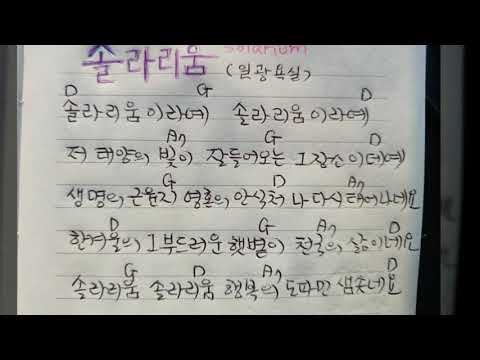 솔라리움 solarium
(일광욕실)
D G D
솔라리움이라예 솔라리움이라예
A7 G D
저 태양의 빛이 잘들어오는 그장소이데예
G D A7
생명의 근원지 영혼의 안식처 나 다시 태어나네요
D G A7 D
한겨울의 그부드러운 햇볕이 천국의 삶이네요
G D A7 D
솔라리움 솔라리움 행복의 도파민 샘솟네요